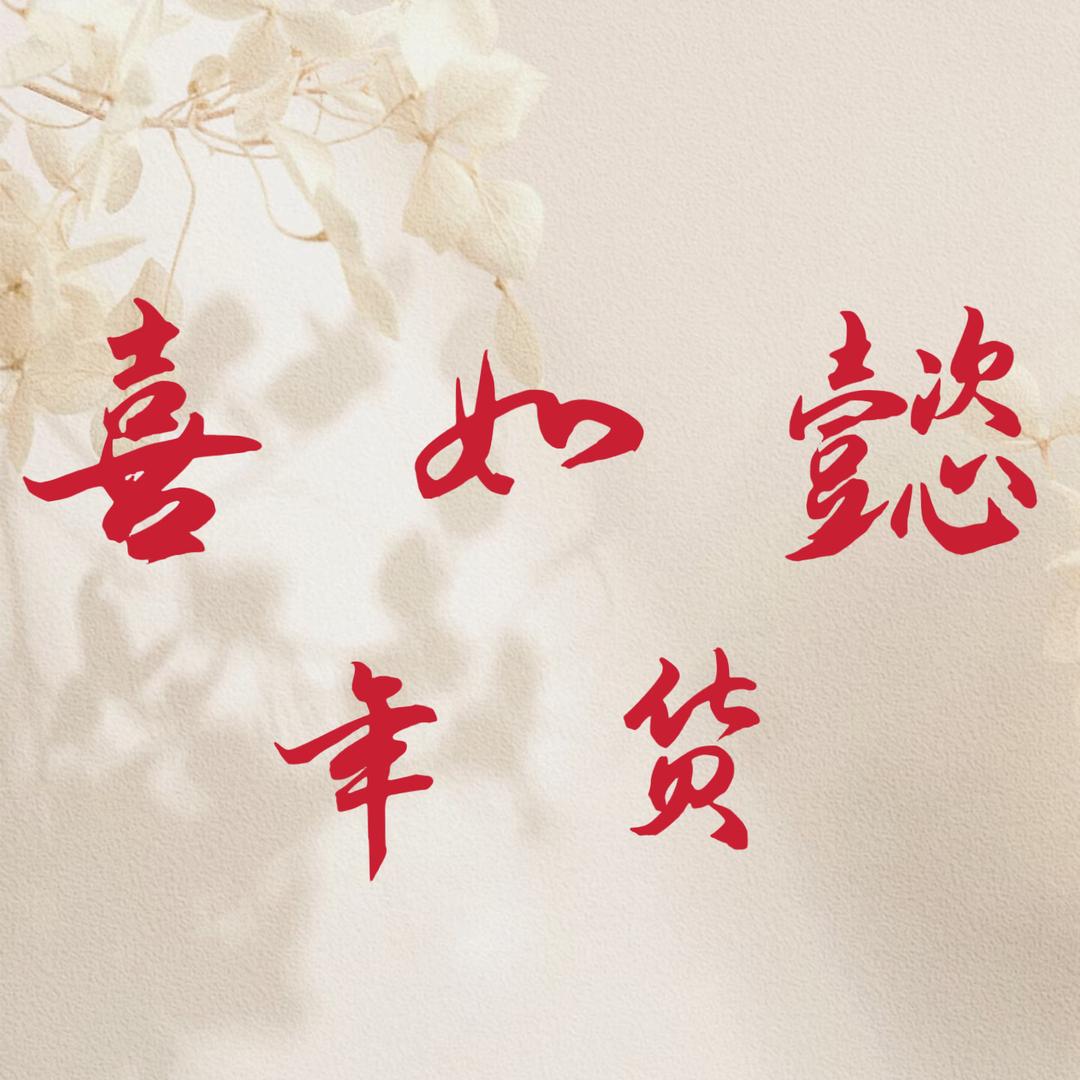 喜如懿
年货